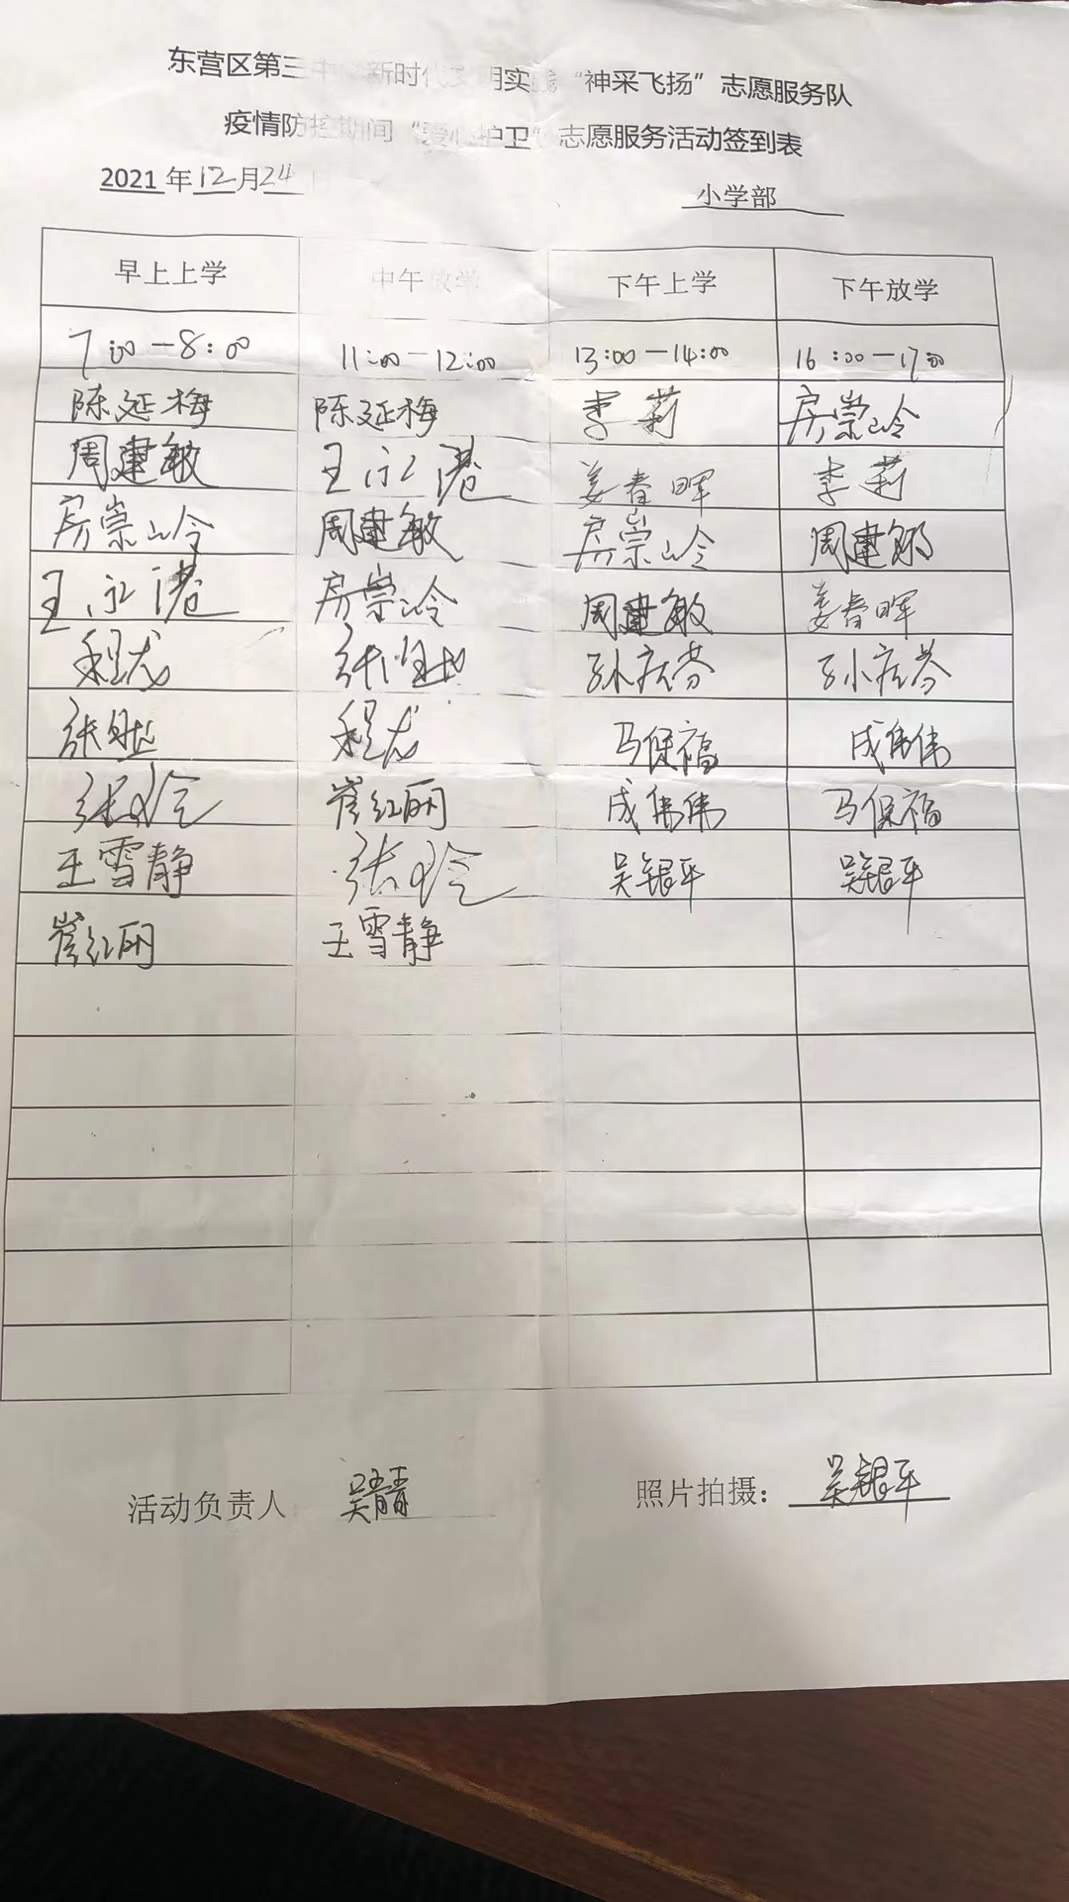 东营区第三中学新时代文明实践“神采飞扬”志愿服务队
疫情防控期间“爱心护卫”志愿服务活动签到表
2021 年 12 月 24 日 小学部
早上上学 中午放学 下午上学 下午放学
7:00-8:00 11:00-12:00 13:00-14:00 16:00-17:00
陈延梅 陈延梅 李莉 房崇岭
周建敏 王永港 姜春晖 李莉
房崇岭 周建敏 房崇岭 周建敏
王永港 房崇岭 周建敏 姜春晖
程龙 孙庆芬 孙庆芬
程龙 马保福 成伟伟
张玲 崔红丽 成伟伟 马保福
王雪静 张玲 吴银平 吴银平
崔红丽 王雪静
活动负责人 吴青青 照片拍摄: 吴银平